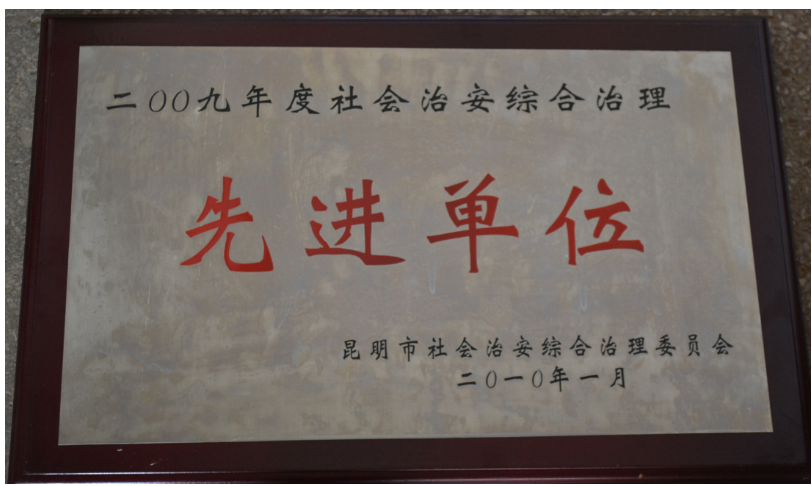 二00九年度社会治安综合治理
先进单位
昆明市社会治安综合治理委员会
二0一0年一月